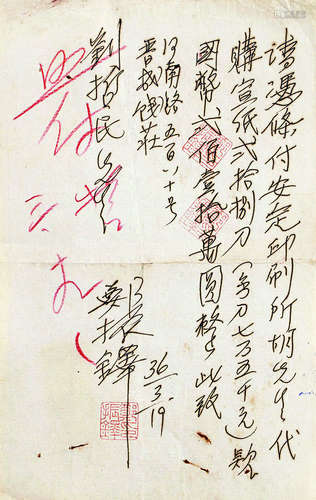 请憑條付安定印刷所胡先生代
購宣纸貳拾捌刀（每刀七万五千元）款
國幣貳佰壹拾萬圓整 此致
河南路五百八十号
晋成钱莊
劉哲民先生
鄭振鐸
36/3.19
照付
三 
鄭印振鐸